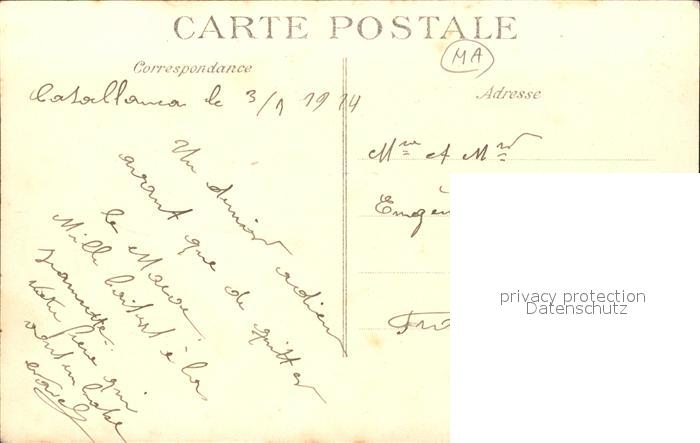 CARTE POSTALE
MA
Correspondance
Adresse
Casablanca le 3/1 1914
Un dernier adieu
avant que de quitter
le Maroc.
Mille baisers à la
Votre frère qui
Mme et Mr
Eugèn
privacy protection
Datenschutz